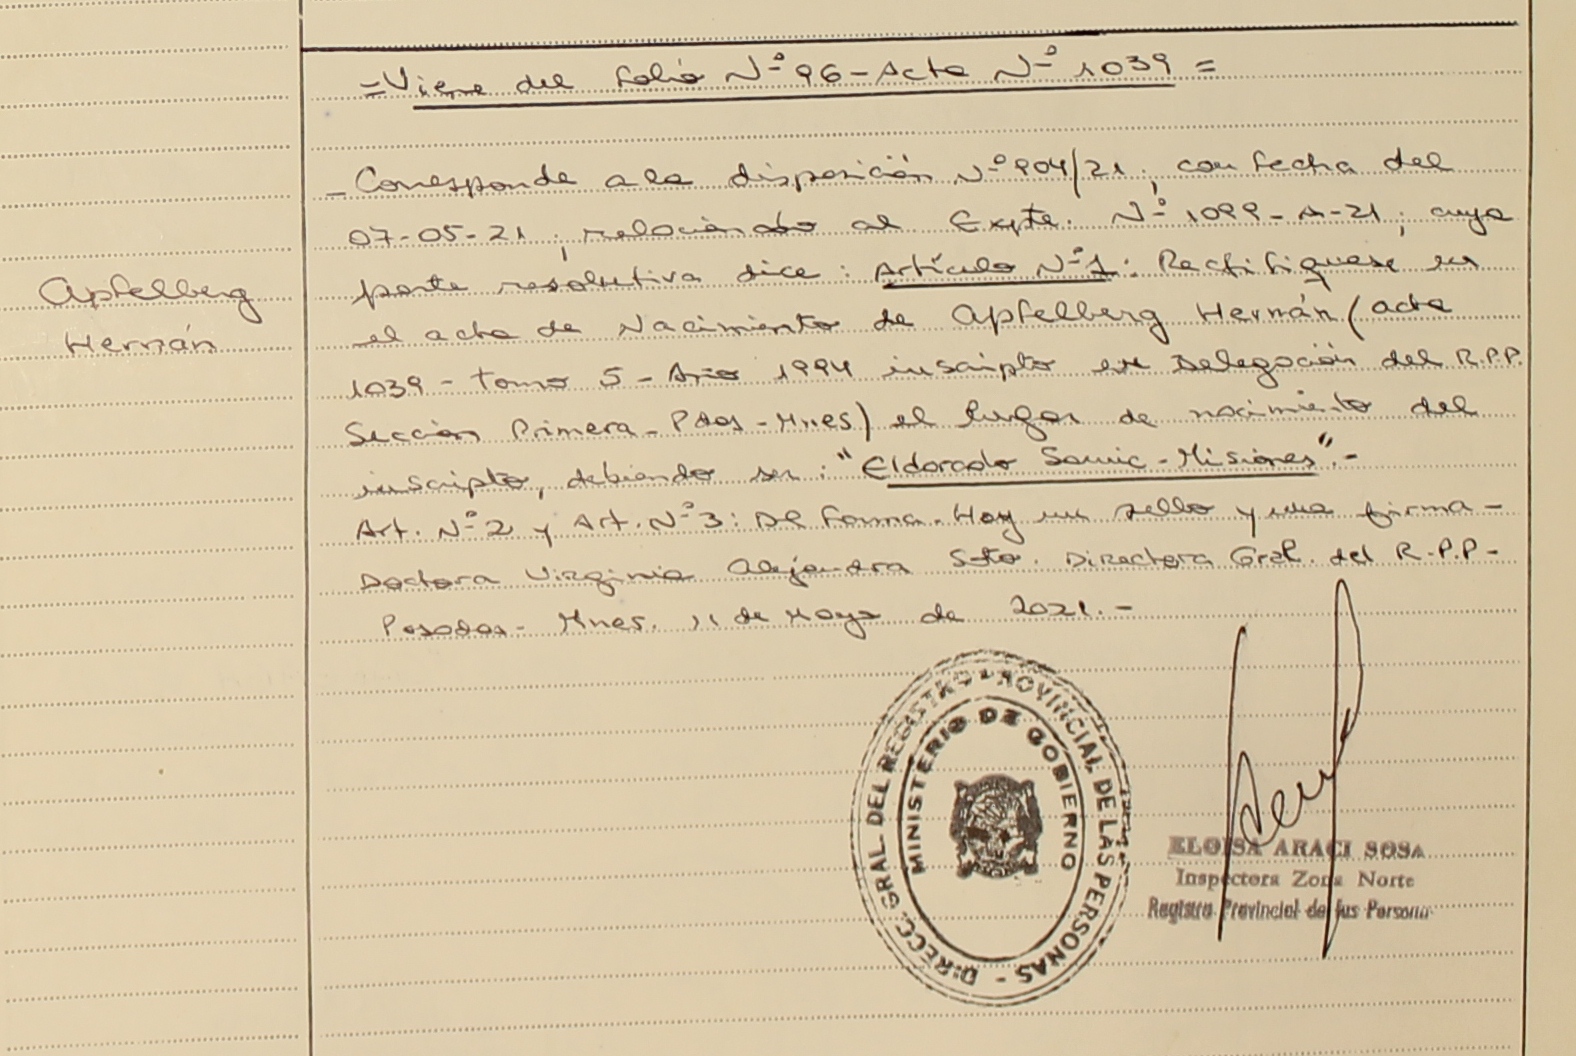 =Viene del folio Nº 96 - Acta Nº 1039 =
- Corresponde a la disposición Nº 904/21; con fecha del
07-05-21; relacionado al Expte. Nº 1099-A-21; cuya
Apfelberg
Hernán
parte resolutiva dice: Artículo Nº 1: Rectifiquese en
el acta de Nacimiento de Apfelberg Hernán (acta
1039 - tomo 5 - Año 1994 inscripto en Delegación del R.P.P.
Sección Primera - Pdas - Mnes) el lugar de nacimiento del
inscripto, debiendo ser: "Eldorado Samic - Misiones".-
Art. Nº 2 y Art. Nº 3: De forma. Hay un sello y una firma -
Doctora Virginia Alejandra Soto. Directora Gral. del R.P.P -
Posadas - Mnes. 11 de Mayo de 2021.-
DIRECC. GRAL. DEL REGISTRO PROVINCIAL DE LAS PERSONAS -
MINISTERIO DE GOBIERNO
ELOISA ARACI SOSA
Inspectora Zona Norte
Registro Provincial de las Persona